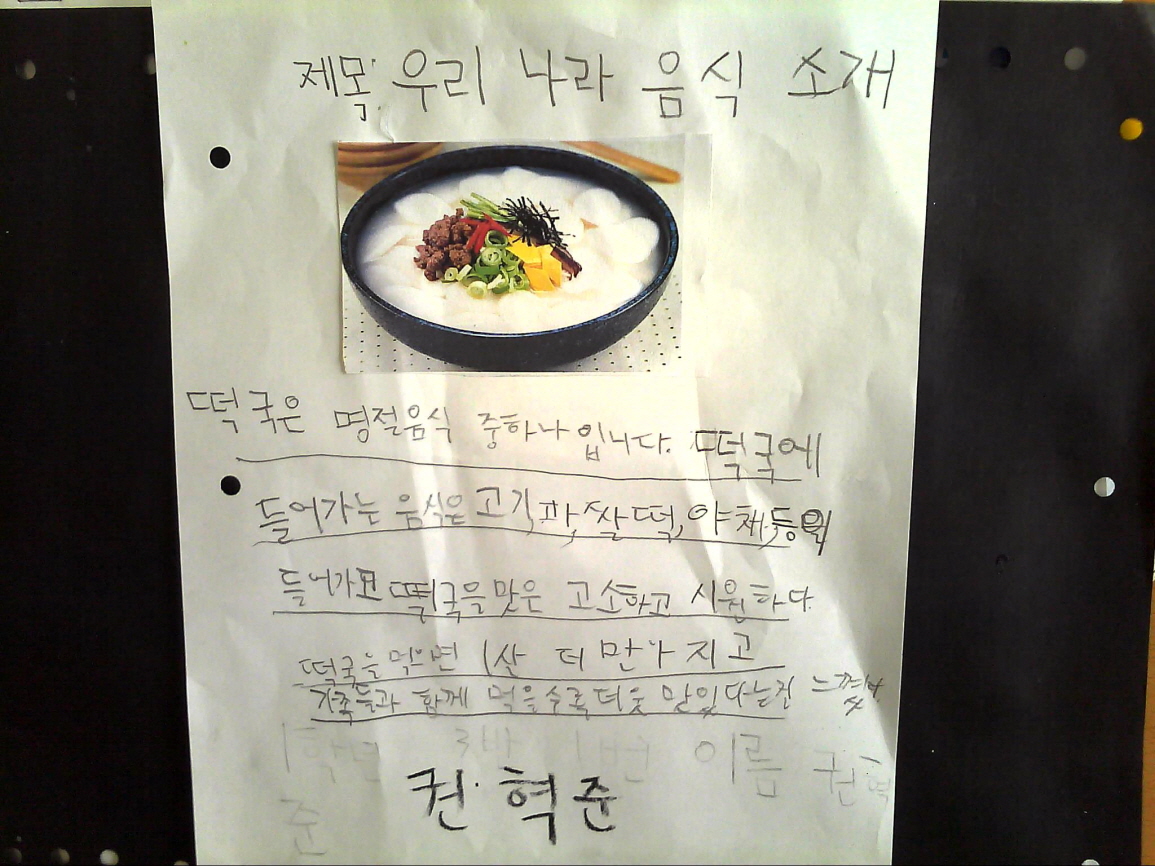 제목: 우리 나라 음식 소개
떡국은 명절음식 중하나입니다. 떡국에
들어가는 음식은 고기, 파, 쌀떡, 야채, 등이
들어가고 떡국을 맛은 고소하고 시원하다.
떡국을 먹으면 1살 더 많아지고
가족들과 함께 먹을수록 더웃 맛있다는건 느꼈다
1학년 3반 1번 이름 권혁
준
권혁준